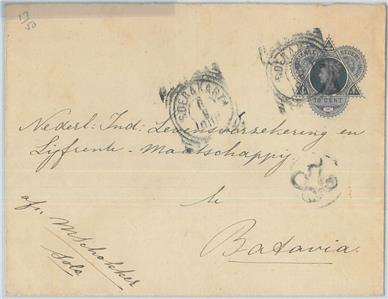 SOERAKARTA
SOERAKARTA
10 CENT
Nederl: Ind: Levensverzekering en
Lijfrente-Maatschappij
te
Batavia.
afz. MSchokker
Solo